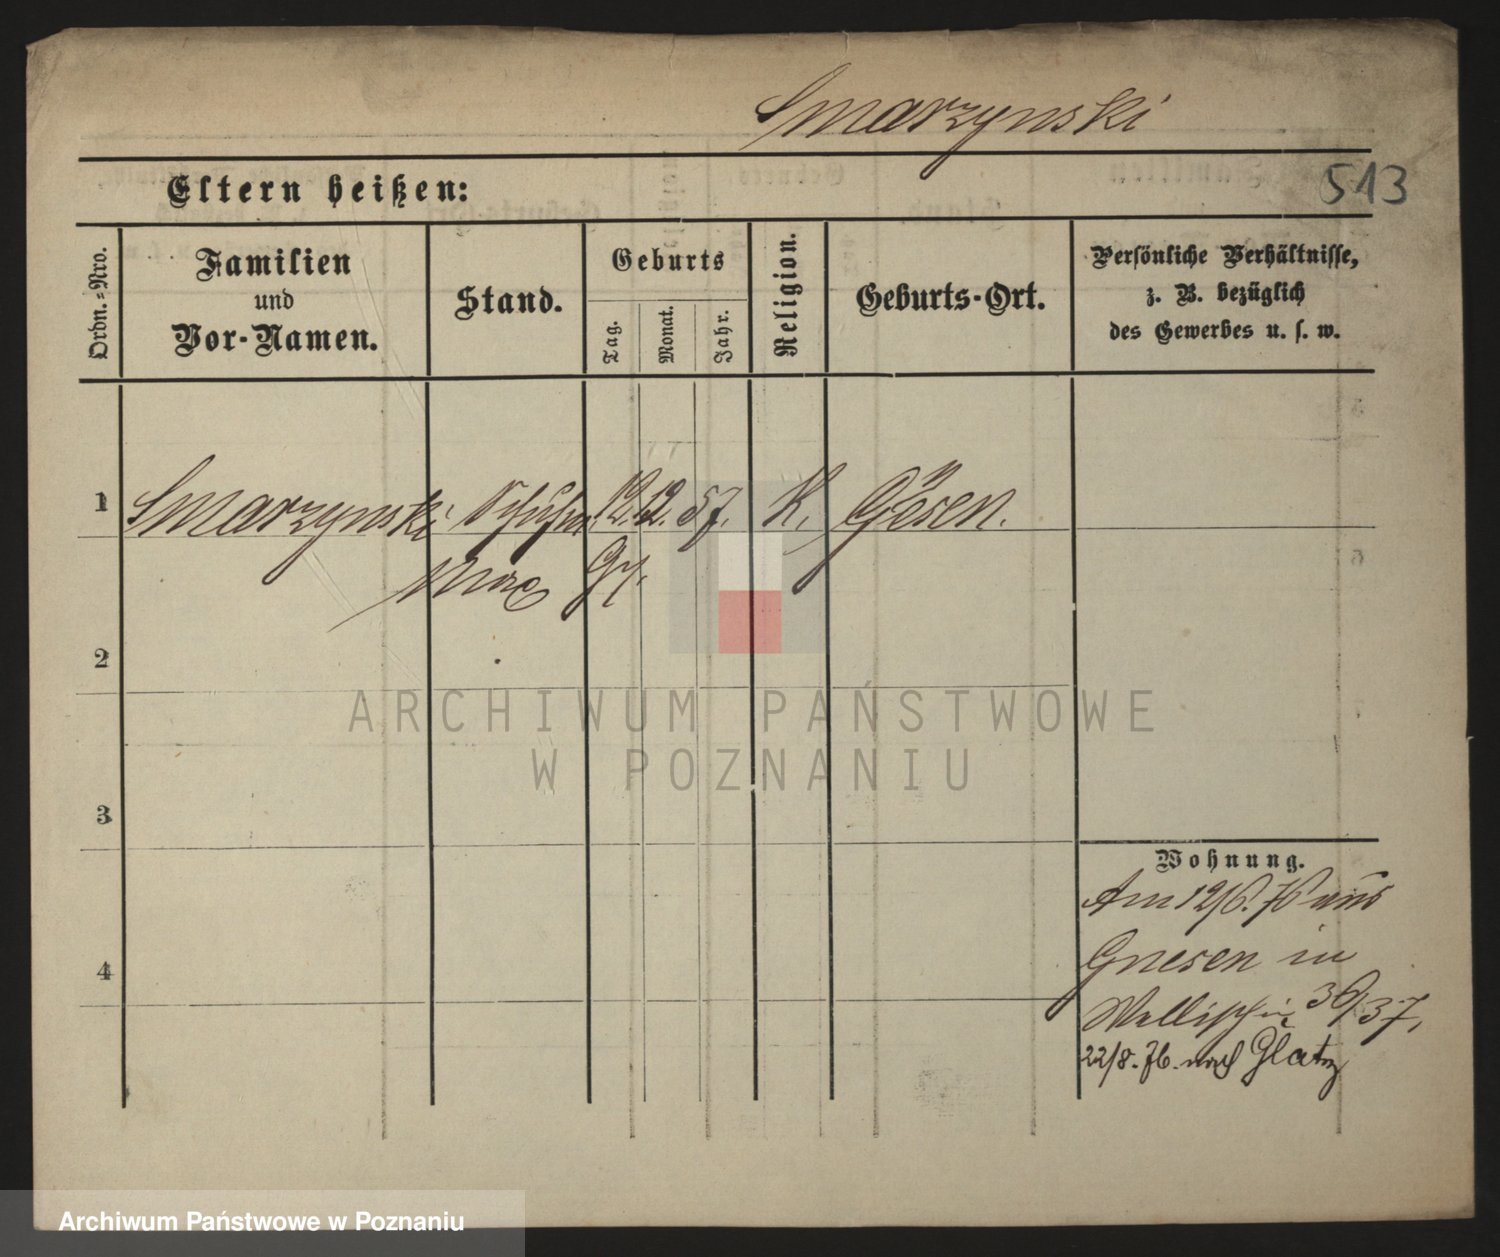 Smarzynski
513
Eltern heißen:
Ordn.=Nro.
Familien
und
Vor-Namen.
Stand.
Geburts
Tag.
Monat.
Jahr.
Religion.
Geburts-Ort.
Persönliche Verhältnisse,
z. B. bezüglich
des Gewerbes u. s. w.
1
Smarzynski 12. 12. 57. K.
Max
2
3
4
Wohnung.
Am 12/6. 76 aus
Gnesen in
36/37,
22/8. 76. nach Glatz
ARCHIWUM PAŃSTWOWE
W POZNANIU
Archiwum Państwowe w Poznaniu